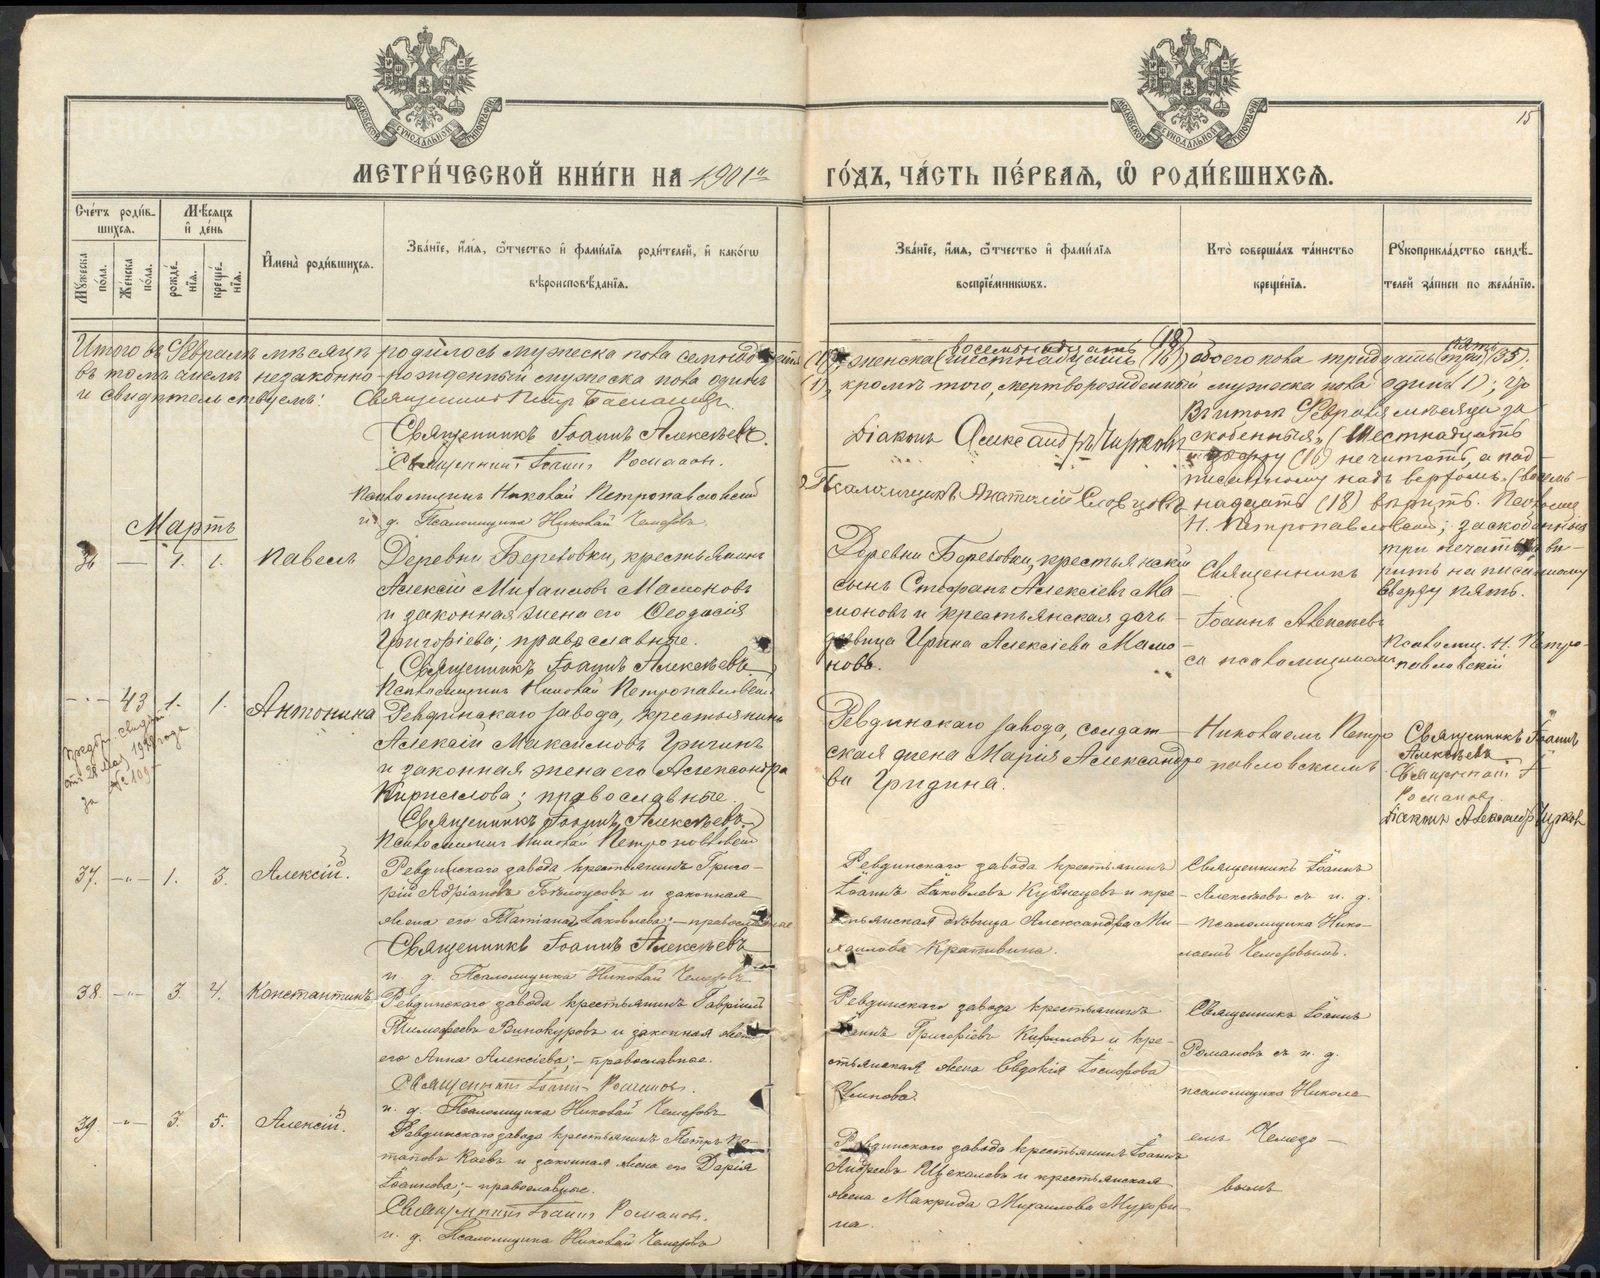 МЕТРИ́ЧЕСКОЙ КНИ́ГИ НА 1901й ГО́ДЪ, ЧА́СТЬ ПЕ́РВАЯ, Ѡ РОДИ́ВШИХСѦ.
15
Сче́тъ роди́в-
шихсѧ.
Мꙋ́жеска по́ла.
Же́нска по́ла.
Мѣ́сѧцъ
и҆ де́нь
рожде́-
нїѧ.
креще́-
нїѧ.
И҆мена̀ роди́вшихсѧ.
Зва́нїе, и҆́мѧ, ѻ҆́тчество и҆ фами́лїѧ роди́телей, и҆ како́гѡ
вѣроисповѣ́данїѧ.
Зва́нїе, и҆́мѧ, ѻ҆́тчество и҆ фами́лїѧ
воспрїе́мникѡвъ.
Кто̀ соверша́лъ та́инство
креще́нїѧ.
Рꙋкоприкла́дство свидѣ́-
телей за́писи по жела́нїю.
Итого въ Февралѣ мѣсяцѣ родилось мужеска пола
женска восемнадцать (18) (шестнадцать (16)) обоего пола тридцать пять (три) (35).
въ томъ числѣ незаконно-рожденный мужеска пола одинъ
(1), кромѣ того, мертворожденный мужеска пола одинъ (1);
и свидѣтельствуемъ:
Священникъ Іоаннъ Алексѣевъ.
Священникъ Іоаннъ Романовъ.
Псаломщикъ Николай Петропавловскій
и. д. Псаломщика Николай Чемезовъ
Діаконъ Александръ Чирковъ
Псаломщикъ Анатолій Словцовъ
Въ итогѣ Февраля мѣсяца за-
скобенныя „(шестнадцать
(16) не читать, а над-
писанному надъ верхомъ „(восем-
надцать (18) вѣрить. Псаломщ.
Н. Петропавловскій; заскобенныя
три не читать, а вѣ-
рить написанному
сверху пять.
Псаломщ. Н. Петро-
павловскій
Мартъ
36 — 1. 1. Павелъ
Деревни Березовки, крестьянинъ
Алексій Михаиловъ Мамоновъ
и законная жена его Ѳеодосія
Григоріева; православные.
Священникъ Іоаннъ Алексѣевъ
Псаломщикъ Николай Петропавловскій
Деревни Березовки, крестьянскій
сынъ Стефанъ Алексіевъ Ма-
моновъ и крестьянская дочь
дѣвица Ирина Алексіева Мамо-
нова.
Священникъ
Іоаннъ Алексѣевъ
съ псаломщикомъ
43 1. 1. Антонина
Ревдинскаго завода, крестьянинъ
Алексій Максимовъ
и законная жена его Александра
Кириллова; православные.
Священникъ Іоаннъ Алексѣевъ
Псаломщикъ Николай Петропавловскій
Ревдинскаго завода, солдат-
ская жена Марія Александро-
ва Гридина.
Николаемъ Петро-
павловскимъ
Священникъ Іоаннъ
Алексѣевъ
Священникъ І.
Романовъ.
Діаконъ Александръ Чирковъ
37. —„— 1. 3. Алексій.
Ревдинскаго завода крестьянинъ Григо-
рій Адріановъ Бѣлоусовъ и законная
жена его Татіана Іаковлева; — православные
Священникъ Іоаннъ Алексѣевъ
и. д. Псаломщика Николай Чемезовъ
Ревдинскаго завода крестьянинъ
Іоаннъ Іаковлевъ Кузнецовъ и кре-
стьянская дѣвица Александра Ми-
хаилова Крапивина.
Священникъ Іоаннъ
Алексѣевъ съ и. д.
псаломщика Нико-
лаемъ Чемезовымъ.
38. —„— 3. 4. Константинъ
Ревдинскаго завода крестьянинъ Гавріилъ
Тимофеевъ Винокуровъ и законная жена
его Анна Алексіева; — православные.
Священникъ Іоаннъ Романовъ.
и. д. Псаломщика Николай Чемезовъ
Ревдинскаго завода крестьянинъ
Іоаннъ Григоріевъ Кириловъ и кре-
стьянская жена Евдокія
Священникъ Іоаннъ
Романовъ съ и. д.
псаломщика Никола-
емъ Чемезо-
вымъ
39. —„— 3. 5. Алексій.
Ревдинскаго завода крестьянинъ Петръ По-
таповъ Каевъ и законная жена его Дарія
Іоаннова; — православные.
Священникъ Іоаннъ Романовъ.
и. д. Псаломщика Николай Чемезовъ
Ревдинскаго завода крестьянинъ Іоаннъ
Андреевъ Щекалевъ и крестьянская
жена Макрида Михаилова Мухори-
на.